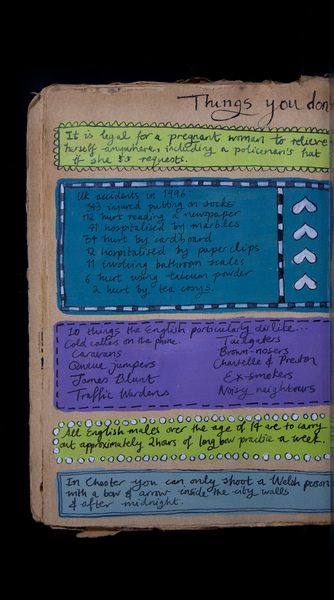 Things you don
It is legal for a pregnant woman to relieve
herself anywhere, including a policeman's hat
if she so requests.
UK accidents in 1996:
543 injured putting on socks
112 hurt reading a newspaper
41 hospitalised by marbles
34 hurt by cardboard
12 hospitalised by paperclips
11 involving bathroom scales
6 hurt using talcum powder
2 hurt by tea cosys.
10 things the English particularly dislike...
Cold callers on the phone.
Caravans
Queue jumpers
James Blunt
Traffic Wardens
Tailgaters
Brown-nosers
Chantelle & Preston
Ex-smokers
Noisy neighbours
All English males over the age of 14 are to carry
out approximately 2 hours of long bow practice a week.
In Chester you can only shoot a Welsh person
with a bow & arrow inside the city walls
& after midnight.